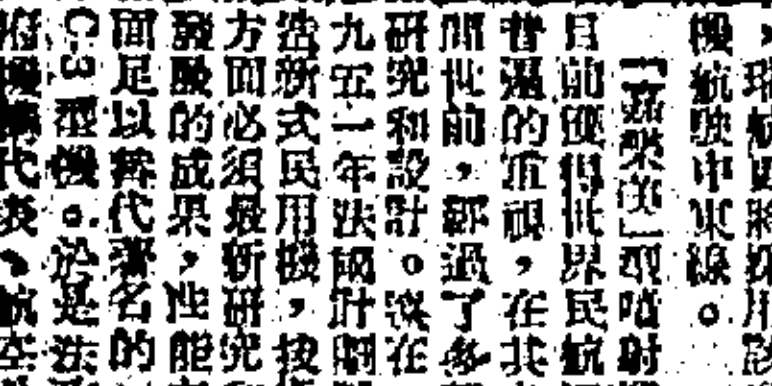 機航駛中東線。
「嘉樂斐」型噴射
目前獲得世界民航
普遍的重視，在其
問世前，經過了多
研究和設計。遠在
九五一年法國計劃
造新式民用機，按
方面必須最新研究
發展的成果，性能
面足以替代著名的
C-3型機。於是法
府機構代表、航空